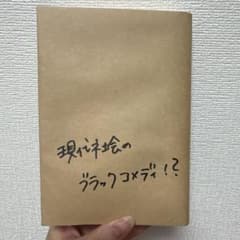 現代社会の
ブラックコメディ!?